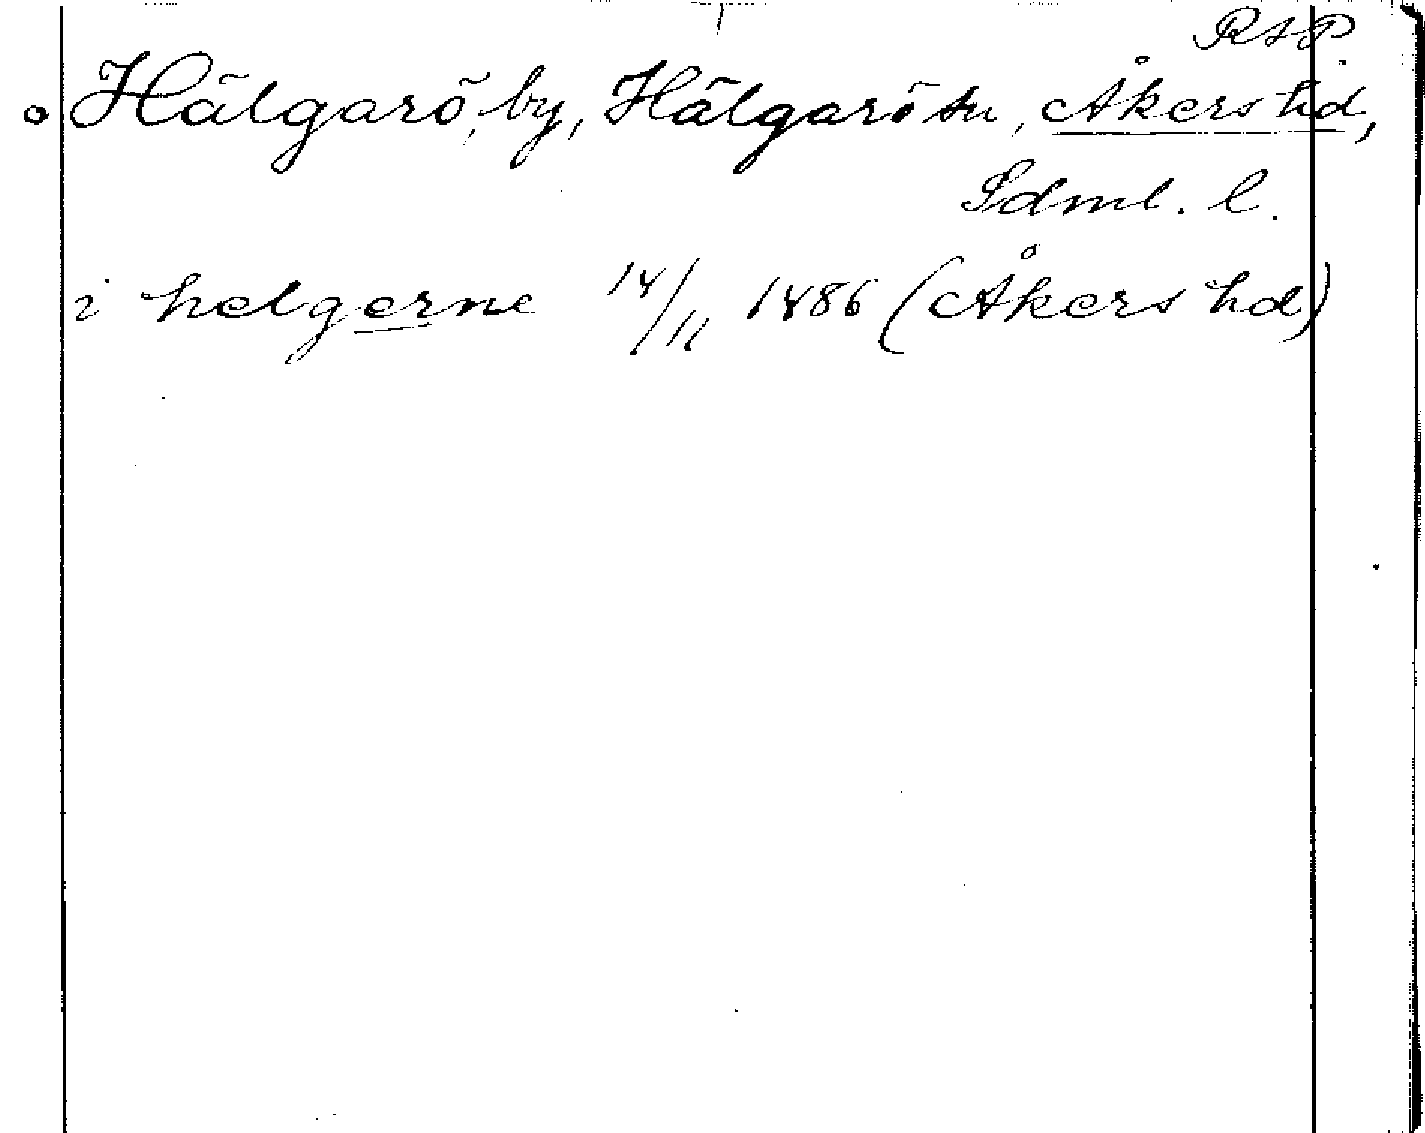 RAP
Hälgarö, by, Hälgarö sn, Åkers hd,
Sdml. l.
i helgerne 14/11 1486 (Åkers hd)